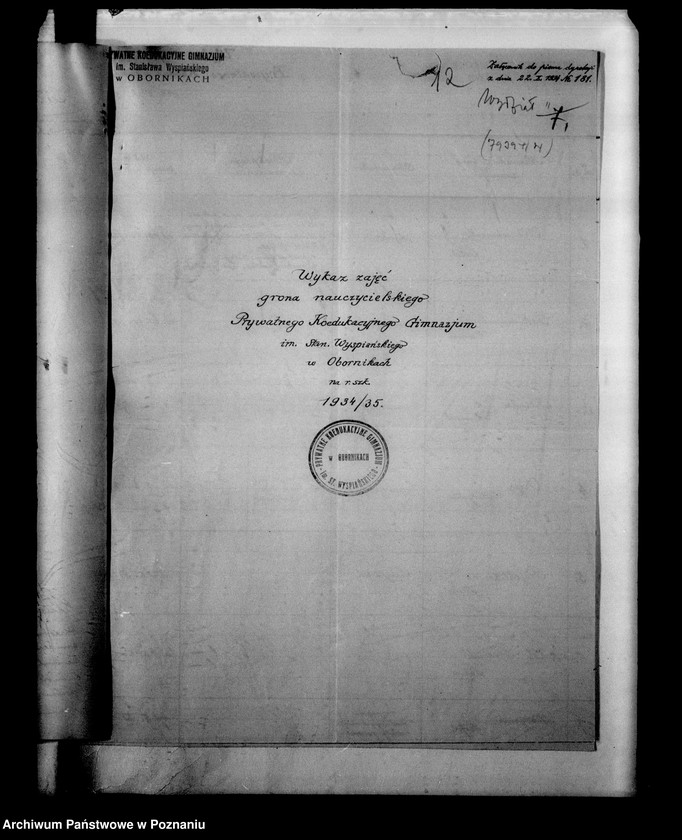 PRYWATNE KOEDUKACYJNE GIMNAZJUM
im. Stanisława Wyspiańskiego
w OBORNIKACH
42
Załącznik do pisma dyrekcji
z dnia 22. X. 1934 № 181.
Wydział "7,
(7929-II/34)
Wykaz zajęć
grona nauczycielskiego
Prywatnego Koedukacyjnego Gimnazjum
im. Stan. Wyspiańskiego
w Obornikach
na r. szk.
1934/35.
PRYWATNE KOEDUKACYJNE GIMNAZJUM
w OBORNIKACH
IM. ST. WYSPIAŃSKIEGO
Archiwum Państwowe w Poznaniu